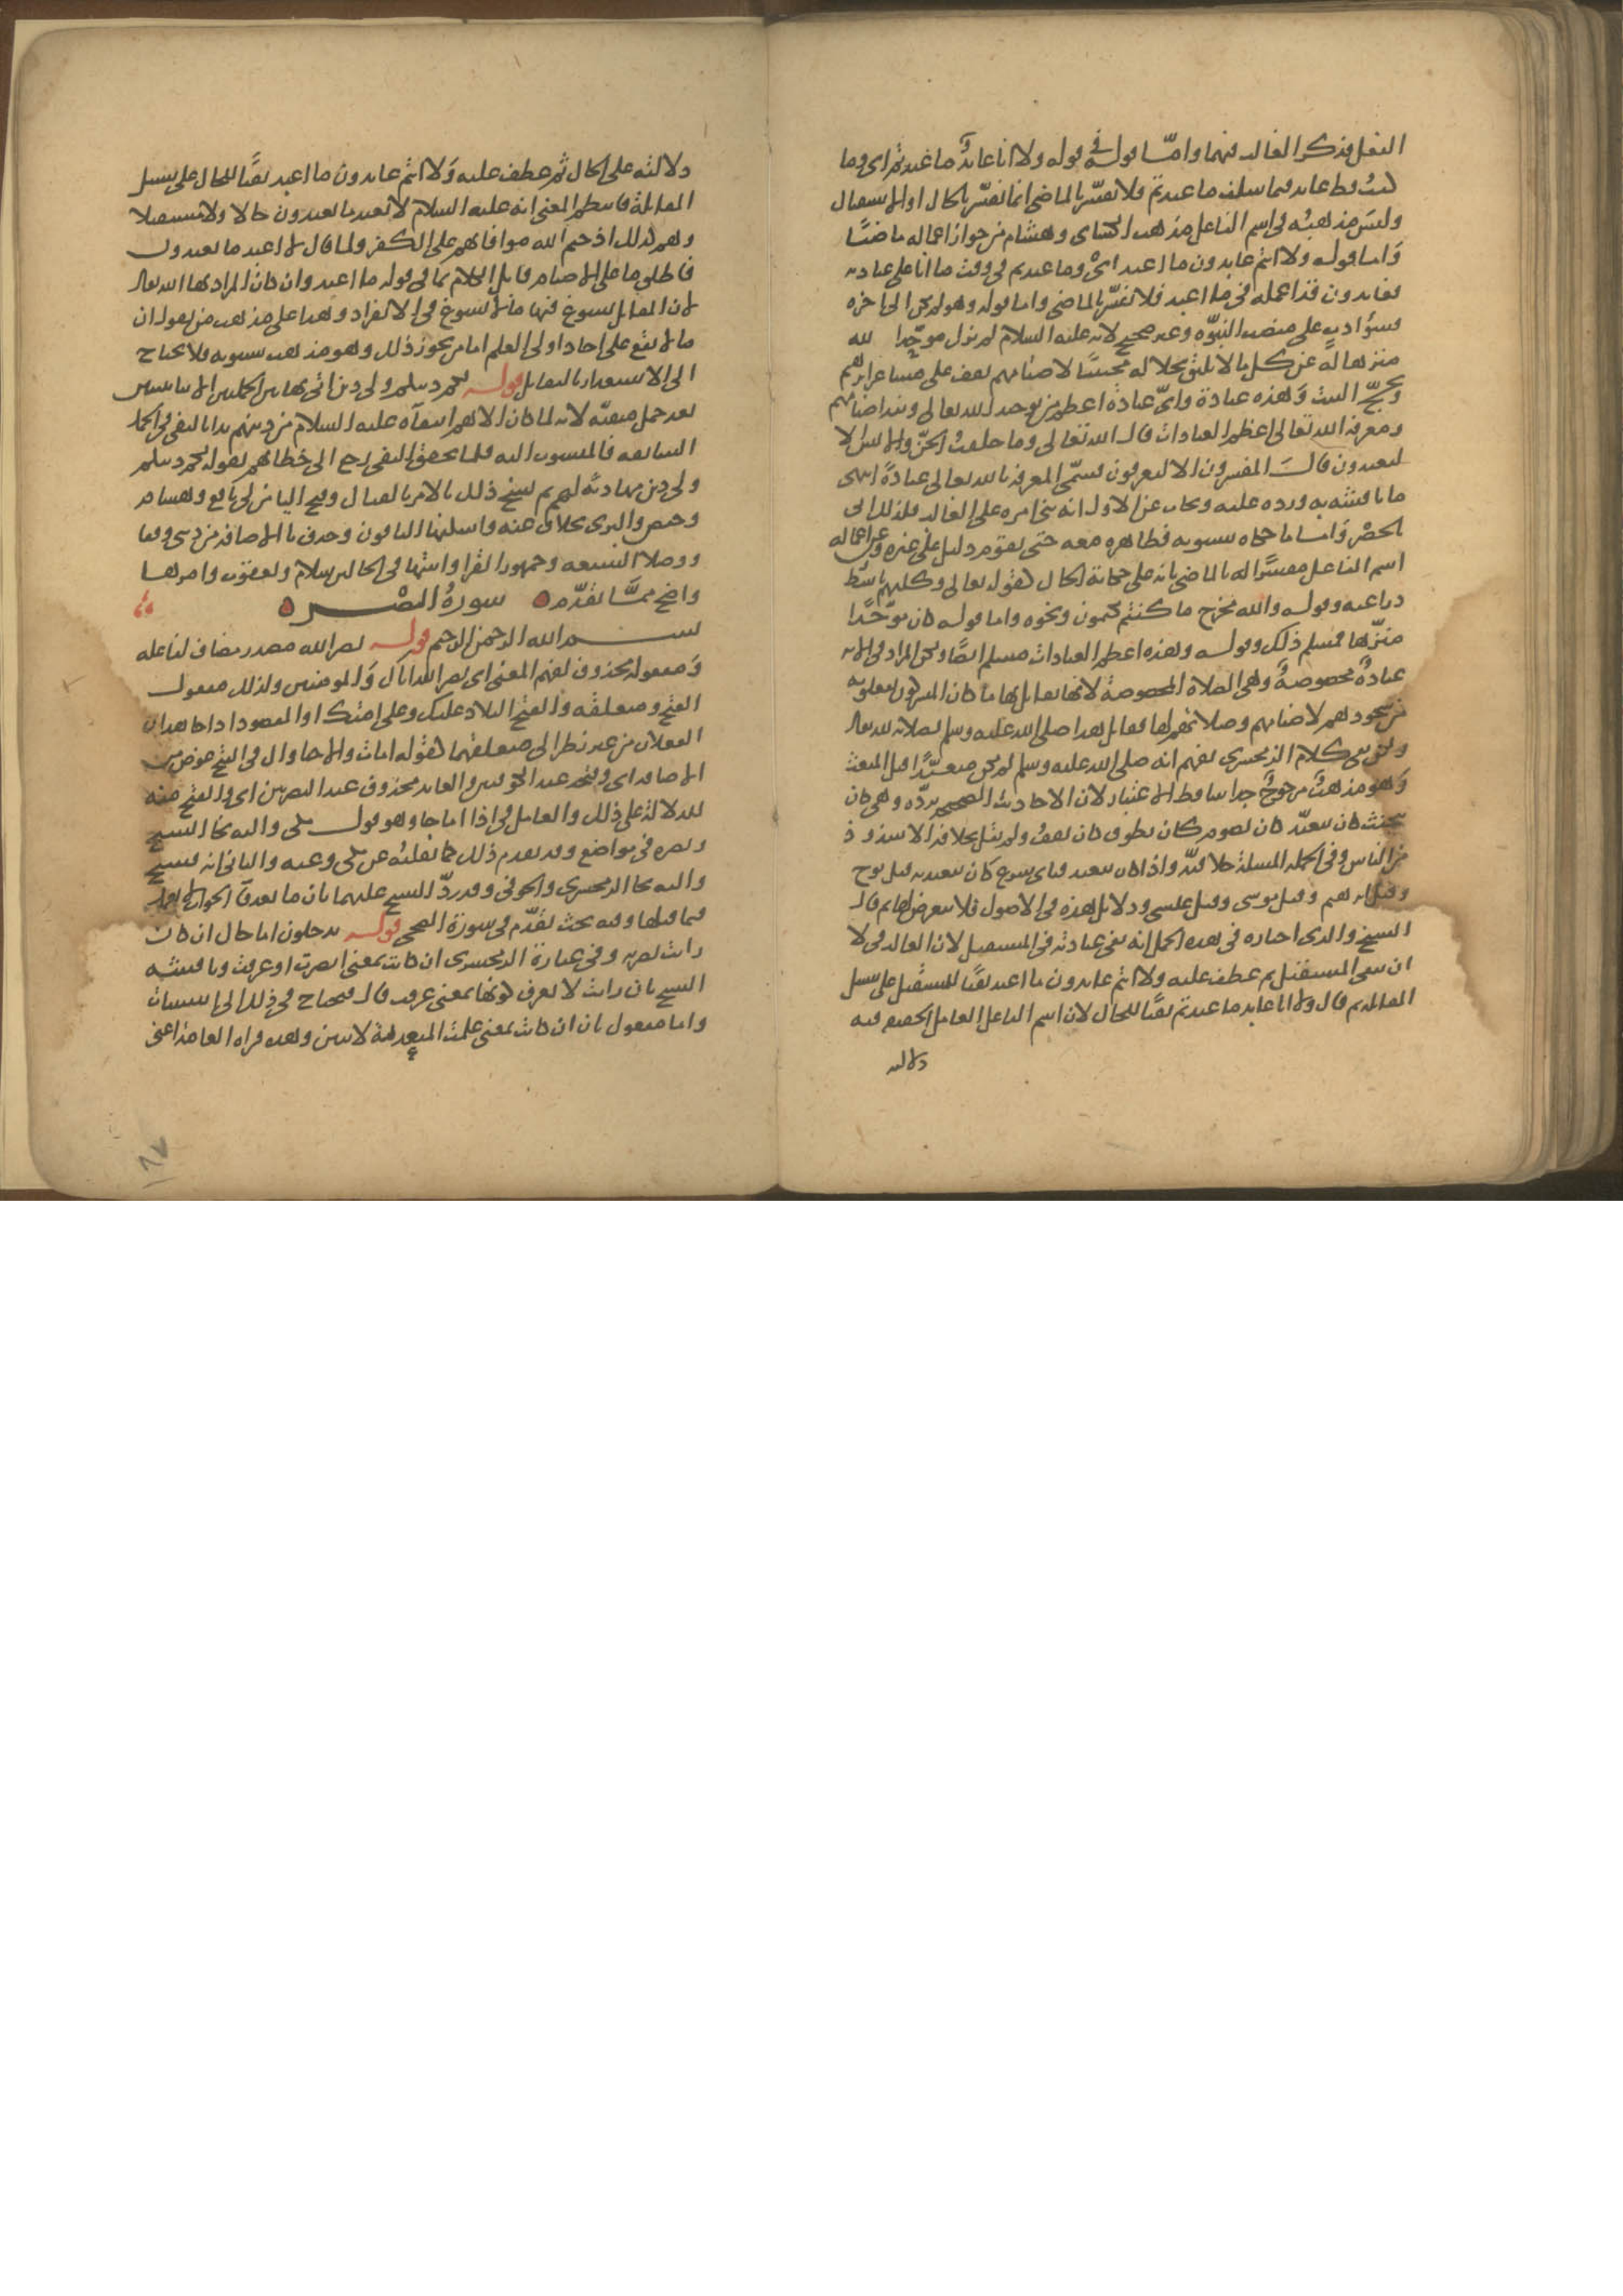 النفل فذكر الغالب فيهما واما قوله في قوله ولا انا عابد ما عبدتم اي وما
كنت قط عابدا فيما سلف ما عبدتم فلا تفسر بالماضي انما تفسر بالحال او الاستقبال
وليس مذهبه في اسم الفاعل مذهب الكسائي وهشام من جواز اعماله ماضيا
واما قوله ولا انتم عابدون ما اعبد اي وما عبدتم في وقت ما انا على عبادته
فعابدون قد اعمله في ما اعبد فلا تفسر بالماضي واما قوله وهو لم يكن الى اخره
فسوء ادب على منصب النبوه وغير صحيح لانه عليه السلام لم يزل موحدا لله
منزها له عن كل ما لا يليق بجلاله مجتنبا لاصنامهم يقف على مشاعر ابرهيم
ويحج البيت وهذه عبادة واي عبادة اعظم من توحيد الله تعالى ونبذ اصنامهم
ومعرفة الله تعالى اعظم العبادات قال الله تعالى وما خلقت الجن والانس الا
ليعبدون قال المفسرون الا ليعرفون فسمى المعرفة بالله تعالى عبادة انتهى
ما ناقشه به ورده عليه ويجاب عن الاول انه بنى امره على الغالب فلذلك اتى
بالحصر واما ما حكاه سيبويه فظاهره معه حتى يقوم دليل على غيره وعن اعماله
اسم الفاعل مفسرا له بالماضي بانه على حكاية الحال كقوله تعالى وكلبهم باسط
ذراعيه وقوله والله مخرج ما كنتم تكتمون ونحوه واما قوله كان موحدا
منزها فمسلم ذلك وقوله وهذه اعظم العبادات مسلم ايضا ولكن المراد في الايه
عبادة مخصوصة وهي الصلاة المخصوصة لانها يقابل بها ما كان المشركون يفعلونه
من سجودهم لاصنامهم وصلاتهم لها فقابل هذا صلى الله عليه وسلم بصلاته لله تعالى
ولكن نفي كلام الزمخشري يفهم انه صلى الله عليه وسلم لم يكن متعبدا قبل المبعث
وهو مذهب مرجوح جدا ساقط الاعتبار لان الاحاديث الصحيحه ترده وهي كان
يتحنث كان يتعبد كان يصوم كان يطوف كان يقف ولم يقل بخلافه الا شذوذ
من الناس وفي الجملة المسئلة خلافية واذا كان يتعبد فباي شرع كان يتعبد به قيل نوح
وقيل ابرهيم وقيل موسى وقيل عيسى ودلائل هذه في الاصول فلا نتعرض لها ثم قال
الشيخ والذي اختاره في هذه الجمل انه نفى عبادته في المستقبل لان الغالب في لا
ان تنفي المستقبل ثم عطف عليه ولا انتم عابدون ما اعبد نفيا للمستقبل على سبيل
المقابلة ثم قال ولا انا عابد ما عبدتم نفيا للحال لان اسم الفاعل العامل الحقيقة فيه
دلالته
دلالته على الحال ثم عطف عليه ولا انتم عابدون ما اعبد نفيا للحال على سبيل
المقابلة فانتظم المعنى انه عليه السلام لا يعبد ما يعبدون حالا ولا مستقبلا
وهم كذلك اذ حتم الله موافاتهم على الكفر ولما قال لا اعبد ما تعبدون
فاطلق ما على الاصنام قابل الكلام بما في قوله ما اعبد وان كان المراد بها الله تعالى
لان المقابل يسوغ فيها ما لا يسوغ في الانفراد وهذا على مذهب من يقول ان
ما لا تقع على احاد اولي العلم اما من يجوز ذلك وهو مذهب سيبويه فلا يحتاج
الى الاستعذار بالتقابل قوله لكم دينكم ولي دين اتى بهاتين الجملتين الاثباتيتين
بعد جمل منفية لانه لما كان الاهم انتفاءه عليه السلام من دينهم بدا بالنفي في الجمل
السابقه بالمنسوب اليه فلما تحقق النفي رجع الى خطابهم بقوله لكم دينكم
ولي دين مهادنة لهم ثم نسخ ذلك بالامر بالقتال وفتح الياء من لي نافع وهشام
وحفص والبزي بخلاف عنه واسكنها الباقون وحذف ياء الاضافة من ديني وقفا
ووصلا السبعه وجمهور القراء واثبتها في الحالين سلام ويعقوب وامرهما
واضح مما تقدم سورة النصر
بسم الله الرحمن الرحيم قوله نصر الله مصدر مضاف لفاعله
ومفعوله محذوف لفهم المعنى اي نصر الله اياك والمؤمنين وكذلك مفعول
الفتح ومتعلقه والفتح البلاد عليك وعلى امتك او المقصود اذا جا هذان
الفعلان من غير نظر الى متعلقهما كقوله امات واحيا وال في الفتح عوض من
الاضافة اي وفتحه عند الكوفيين والعائد محذوف عند البصريين اي والفتح منه
للدلالة على ذلك والعامل في اذا اما جا وهو قول مكي واليه نحا الشيخ
ونصره في مواضع وقد تقدم ذلك كما نقلته عن مكي وعنه والثاني انه فسبح
واليه نحا الزمخشري والحوفي وقد رد الشيخ عليهما بان ما بعد فا الجواب لا يعمل
فيما قبلها وفيه بحث تقدم في سورة الضحى قوله يدخلون اما حال ان كان
رايت بصريه وفي عبارة الزمخشري ان كانت بمعنى ابصرت او عرفت وناقشه
الشيخ بان رايت لا يعرف كونها بمعنى عرفت قال فيحتاج في ذلك الى استثبات
واما مفعول ثان ان كانت بمعنى علمت المتعدية لاثنين وهذه قراة العامة اعني